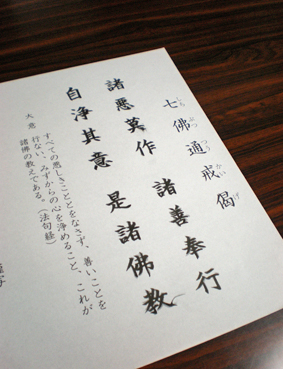 七佛通戒偈
しちぶつつうかいげ
諸悪莫作 諸善奉行
自浄其意 是諸佛教
大意 すべての悪しきことをなさず、善いことを
行ない、みずからの心を浄めること、これが
諸佛の教えである。(法句経)